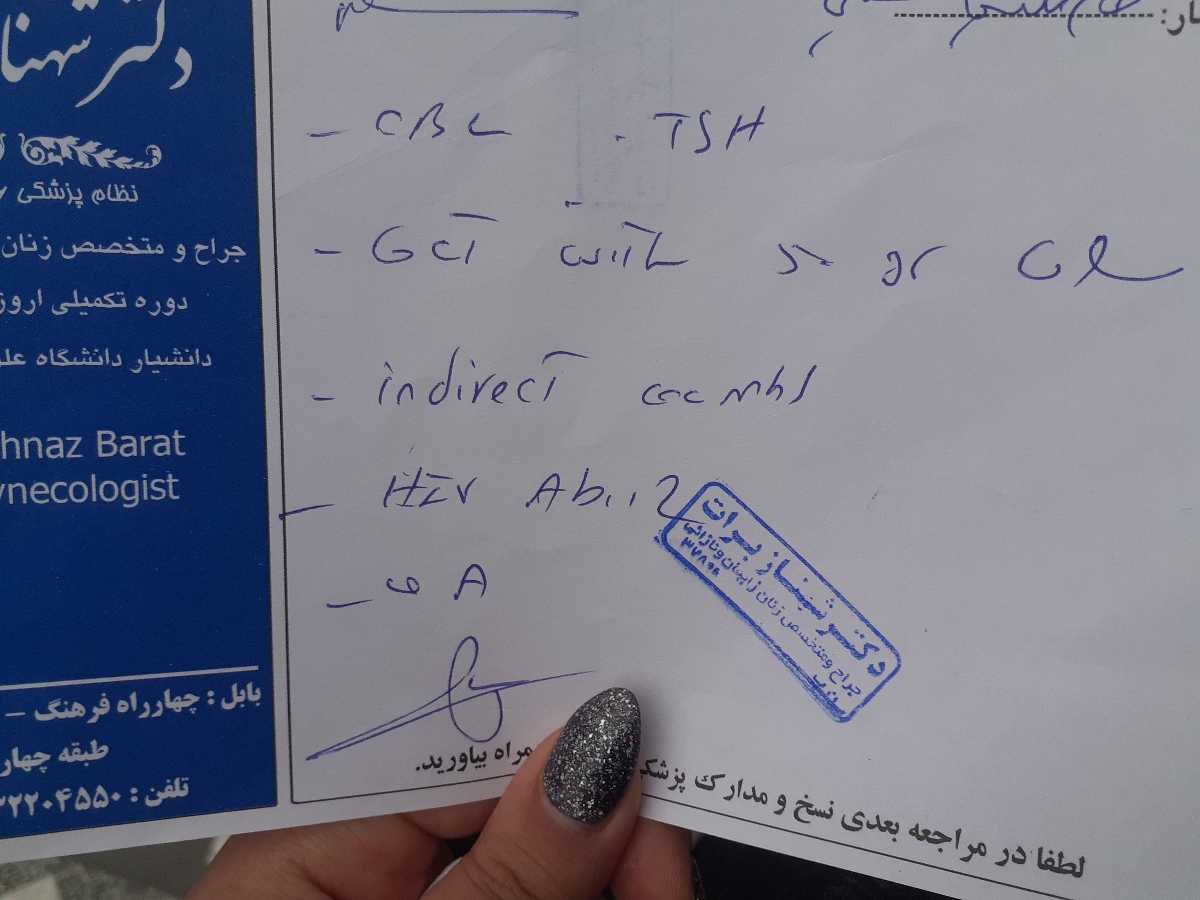 دکتر شهنا
نظام پزشکی
جراح و متخصص زنان
دوره تکمیلی اروز
دانشیار دانشگاه عل
hnaz Barat
ynecologist
بابل : چهارراه فرهنگ –
طبقه چهار
تلفن : ۳۲۲۰۴۵۵۰
ار:
- CBC - TSH
- GCT with 50 gr Gl
- indirect coombs
- HIV Ab 1,2
- UA
دکتر شهناز برات
جراح و متخصص زنان زایمان و نازائی
لطفا در مراجعه بعدی نسخ و مدارک پزشکی
مراه بیاورید.